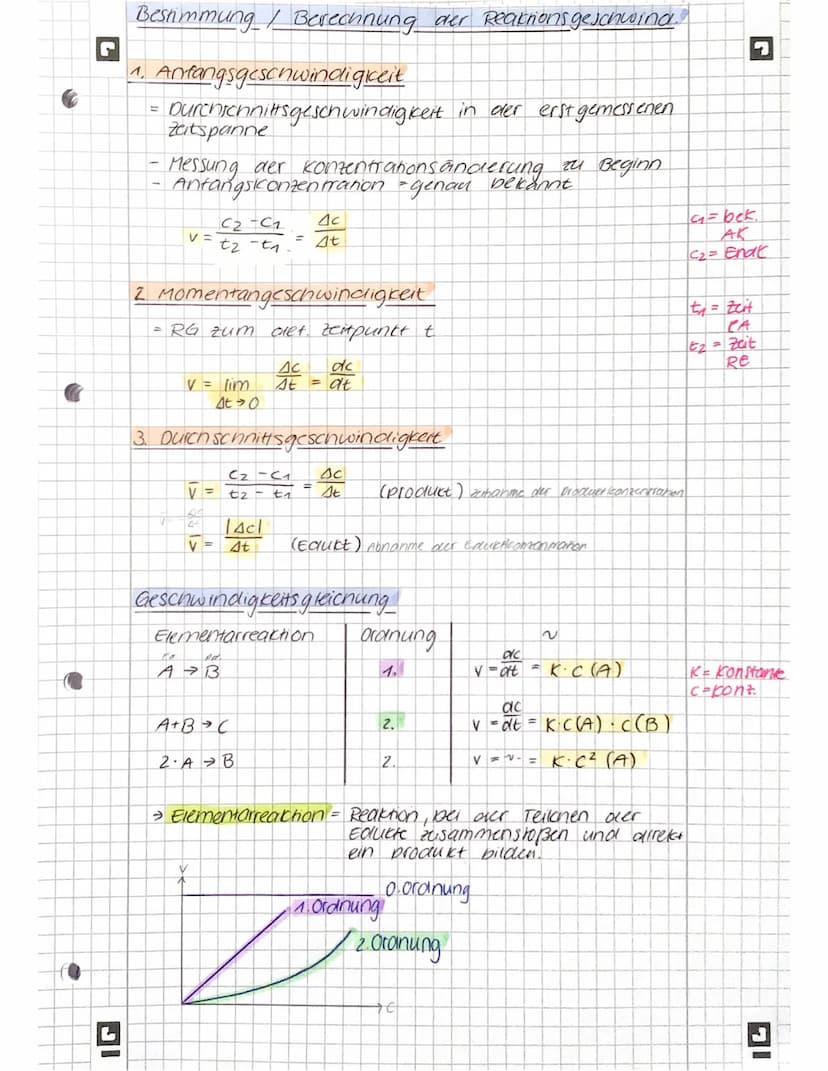 Bestimmung / Berechnung der Reaktionsgeschwind.
1. Anfangsgeschwindigkeit
= Durchschnittsgeschwindigkeit in der erstgemessenen
Zeitspanne
- Messung der Konzentrationsänderung zu Beginn
- Anfangskonzentration = genau bekannt
v = (c2 - c1)/(t2 - t1) = Δc/Δt
c1 = bek.
AK
c2 = EndK
2. Momentangeschwindigkeit
= RG zum def. Zeitpunkt t
t1 = Zeit
t2 = Zeit
RE
v = lim Δc/Δt = dc/dt
Δt → 0
3. Durchschnittsgeschwindigkeit
v̅ = (c2 - c1)/(t2 - t1) = Δc/Δt (Produkt) Zunahme der Produktkonzentration
v̅ = |Δc|/Δt (Edukt) Abnahme der Eduktkonzentration
Geschwindigkeitsgleichung
Elementarreaktion Ordnung ~
A → B 1. v = dc/dt = K · c (A)
K = Konstante
c = Konz.
A + B → C 2. v = dc/dt = K · c(A) · c(B)
2 · A → B 2. v = -"- = K · c² (A)
→ Elementarreaktion = Reaktion, bei der Teilchen der
Edukte zusammenstoßen und direkt
ein Produkt bilden.
v
0. Ordnung
1. Ordnung
2. Ordnung
c